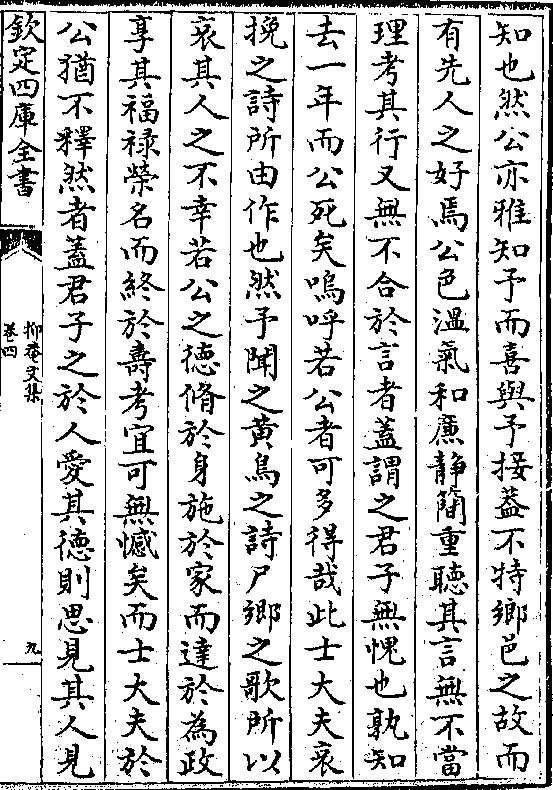 知也然公亦雅知予而喜與予接葢不特鄉邑之故而
有先人之好焉公色溫氣和廉靜簡重聽其言無不當
理考其行又無不合於言者葢謂之君子無愧也孰知
去一年而公死矣嗚呼若公者可多得哉此士大夫哀
挽之詩所由作也然予聞之黃鳥之詩尸鄉之歌所以
哀其人之不幸若公之德脩於身施於家而達於為政
享其福祿榮名而終於壽考宜可無憾矣而士大夫於
公猶不釋然者葢君子之於人愛其德則思見其人見
欽定四庫全書
抑菴文集
卷四
九